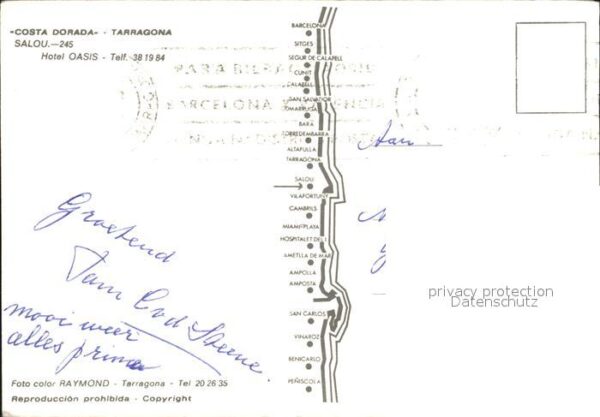 «COSTA DORADA» - TARRAGONA
SALOU.—245
Hotel OASIS - Telf. 38 19 84
PARA BILBAO
BARCELONA
BARCELONA
SITGES
SEGUR DE CALAFELL
CUNIT
CALAFELL
SAN SALVADOR
COMARRUGA
BARÁ
TORREDEMBARRA
ALTAFULLA
TARRAGONA
SALOU
VILAFORTUNY
CAMBRILS
MIAMI-PLAYA
HOSPITALET DEL I.
AMETLLA DE MAR
AMPOLLA
AMPOSTA
SAN CARLOS
VINAROZ
BENICARLO
PEÑISCOLA
Aan
privacy protection
Datenschutz
Groetend
mooi weer
alles prima
Foto color RAYMOND - Tarragona - Tel 20 26 35
Reproducción prohibida - Copyright